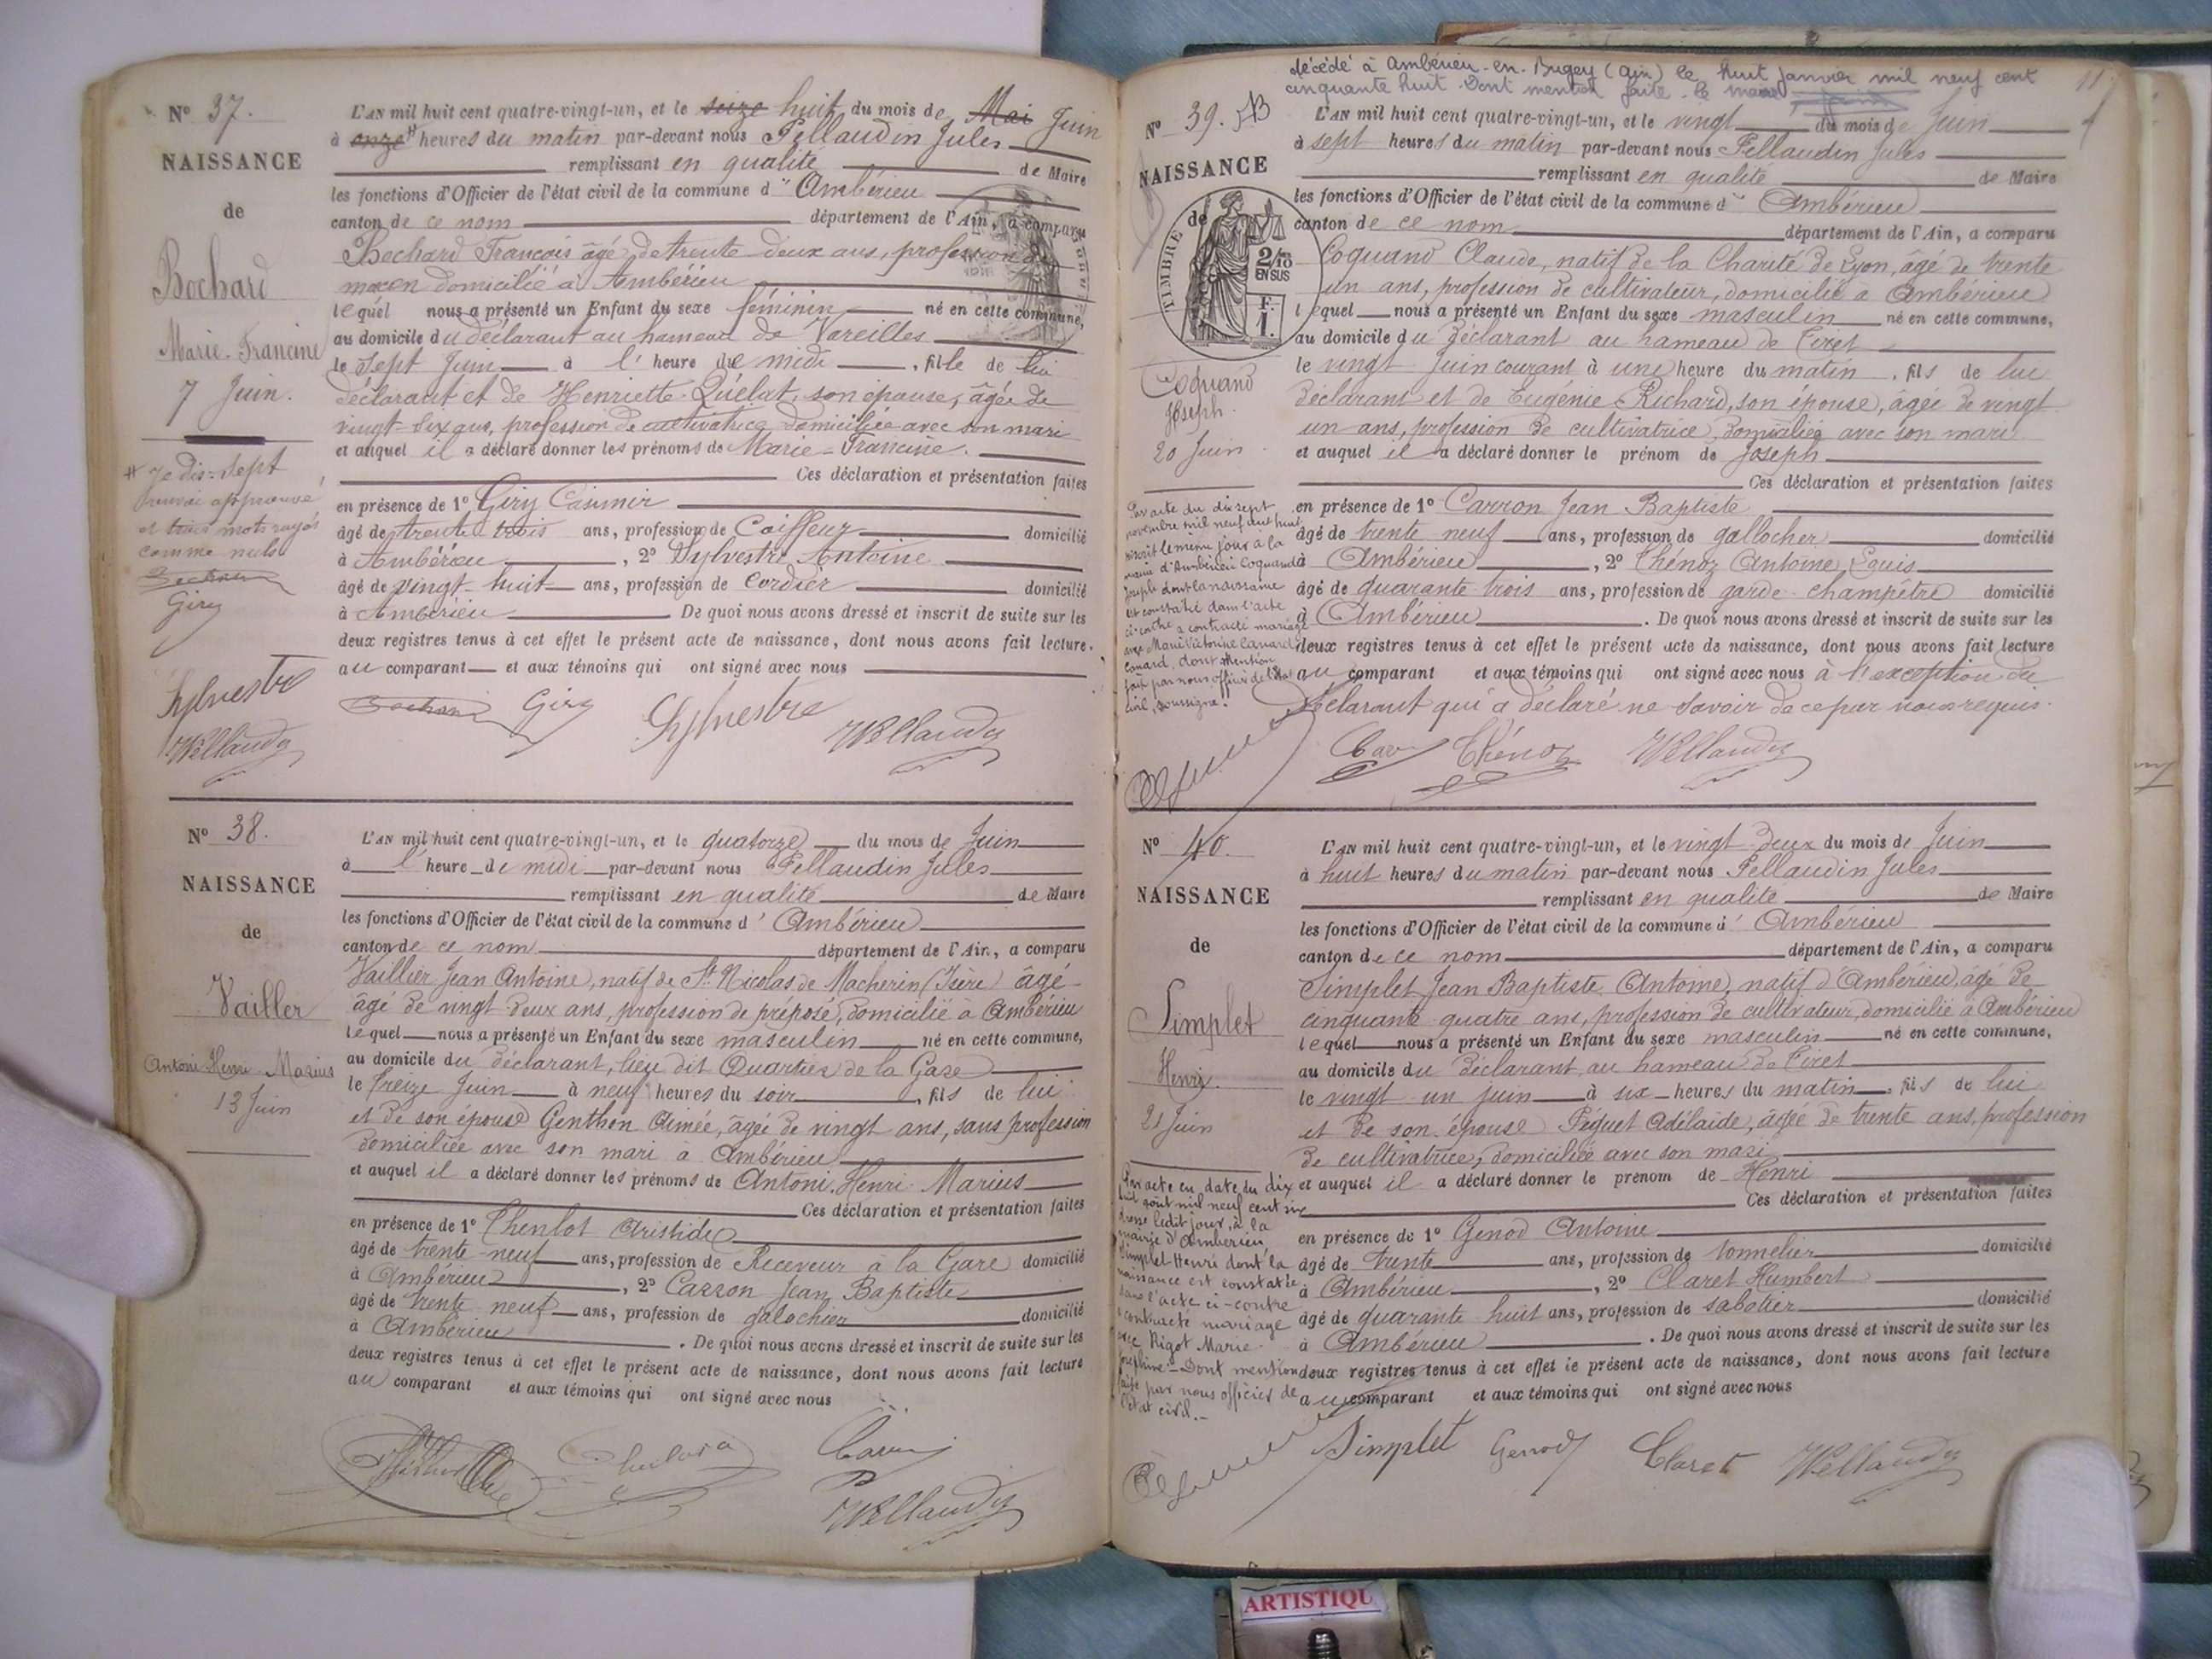 N° 37.
NAISSANCE
de
Bochard
Marie-Francine
7 Juin.
# 7e dix-sept
renvoi approuvé
et trois mots rayés
comme nuls
Giry
Sylvestre
L'AN mil huit cent quatre-vingt-un, et le seize huit du mois de Mai Juin
à onze # heures du matin par-devant nous Pellaudin Jules
remplissant en qualité de Maire
les fonctions d'Officier de l'état civil de la commune d'' Ambérieu
canton de ce nom département de l'Ain, a comparu
Bochard François âgé de trente-deux ans, profession de
maçon domicilié à Ambérieu
lequel nous a présenté un Enfant du sexe féminin né en cette commune,
au domicile du déclarant au hameau de Vareilles
le Sept Juin à l' heure de midi, fille de lui
déclarant et de Henriette Quélat, son épouse, âgée de
vingt-six ans, profession de cultivatrice domiciliée avec son mari
et auquel il a déclaré donner les prénoms de Marie-Francine.
Ces déclaration et présentation faites
en présence de 1° Giry Casimir
âgé de trente trois ans, profession de Coiffeur domicilié
à Ambérieu, 2° Sylvestre Antoine
âgé de vingt-huit ans, profession de Cordier domicilié
à Ambérieu De quoi nous avons dressé et inscrit de suite sur les
deux registres tenus à cet effet le présent acte de naissance, dont nous avons fait lecture.
au comparant et aux témoins qui ont signé avec nous
Bochard Giry Sylvestre
N° 38.
NAISSANCE
de
Vailler
Antoni-Henri-Marius
13 Juin
L'AN mil huit cent quatre-vingt-un, et le quatorze du mois de Juin
à l' heure de midi par-devant nous Pellaudin Jules
remplissant en qualité de Maire
les fonctions d'Officier de l'état civil de la commune d' Ambérieu
canton de ce nom département de l'Ain, a comparu
Vaillier Jean Antoine, natif de St Nicolas de Macherin (Isère) âgé
âgé de vingt deux ans, profession de préposé, domicilié à Ambérieu
lequel nous a présenté un Enfant du sexe masculin né en cette commune,
au domicile du déclarant, lieu dit Quartier de la Gare
le treize Juin à neuf heures du soir, fils de lui
et de son épouse Genthon Aimée, âgée de vingt ans, sans profession
domiciliée avec son mari à Ambérieu
et auquel il a déclaré donner les prénoms de Antoni. Henri. Marius
Ces déclaration et présentation faites
en présence de 1° Chenlot Aristide
âgé de trente-neuf ans, profession de Receveur à la Gare domicilié
à Ambérieu, 2° Carron Jean Baptiste
âgé de trente neuf ans, profession de galochier domicilié
à Ambérieu. De quoi nous avons dressé et inscrit de suite sur les
deux registres tenus à cet effet le présent acte de naissance, dont nous avons fait lecture
au comparant et aux témoins qui ont signé avec nous
décédé à Ambérieu-en-Bugey (Ain) le huit Janvier mil neuf cent
cinquante huit. Dont mention faite le
11
N° 39.
NAISSANCE
de
TIMBRE
2/10 EN SUS
F. 1.
Coquand
Joseph.
20 Juin
Par acte du dix sept
novembre mil neuf cent huit
inscrit le même jour à la
mairie d'Ambérieu Coquand
Joseph dont la naissance
est constaté dans l'acte
ci-contre a contracté mariage
avec Marie Victorine Canard
Canard, dont mention
faite par nous officier de l'état
civil, soussigné.
L'AN mil huit cent quatre-vingt-un, et le vingt du mois de Juin
à sept heures du matin par-devant nous Pellaudin Jules
remplissant en qualité de Maire
les fonctions d'Officier de l'état civil de la commune d'' Ambérieu
canton de ce nom département de l'Ain, a comparu
Coquand Claude, natif de la Charité de Lyon, âgé de trente
un ans, profession de cultivateur, domicilié à Ambérieu
lequel nous a présenté un Enfant du sexe masculin né en cette commune,
au domicile du déclarant au hameau de Tiret
le vingt Juin courant à une heure du matin, fils de lui
déclarant et de Eugénie Richard, son épouse, âgée de vingt
un ans, profession de cultivatrice, domiciliée avec son mari
et auquel il a déclaré donner le prénom de Joseph
Ces déclaration et présentation faites
en présence de 1° Carron Jean Baptiste
âgé de trente neuf ans, profession de gallocher domicilié
à Ambérieu, 2° Chénoz Antoine Louis
âgé de quarante trois ans, profession de garde-champêtre domicilié
à Ambérieu. De quoi nous avons dressé et inscrit de suite sur les
deux registres tenus à cet effet le présent acte de naissance, dont nous avons fait lecture
au comparant et aux témoins qui ont signé avec nous à l'exception du
Déclarant qui a déclaré ne savoir de ce par nous requis.
Chénoz
N° 40.
NAISSANCE
de
Simplet
Henri.
21 Juin
Par acte en date du dix
huit août mil neuf cent six
dressé ledit jour, à la
mairie d'Ambérieu,
Simplet Henri dont la
naissance est constatée
dans l'acte ci-contre
a contracté mariage
avec Rigot Marie-
Joséphine. Dont mention
faite par nous officier de
l'état civil.
L'AN mil huit cent quatre-vingt-un, et le vingt deux du mois de Juin
à huit heures du matin par-devant nous Pellaudin Jules
remplissant en qualité de Maire
les fonctions d'Officier de l'état civil de la commune d' Ambérieu
canton de ce nom département de l'Ain, a comparu
Simplet Jean Baptiste Antoine, natif d'Ambérieu, âgé de
cinquante quatre ans, profession de cultivateur, domicilié à Ambérieu
lequel nous a présenté un Enfant du sexe masculin né en cette commune,
au domicile du déclarant, au hameau de Tiret
le vingt un juin à six heures du matin, fils de lui
et de son épouse Péguet Adélaide, âgée de trente ans, profession
de cultivatrice, domiciliée avec son mari
et auquel il a déclaré donner le prénom de Henri
Ces déclaration et présentation faites
en présence de 1° Genod Antoine
âgé de trente ans, profession de tonnelier domicilié
à Ambérieu, 2° Claret Humbert
âgé de quarante huit ans, profession de sabotier domicilié
à Ambérieu. De quoi nous avons dressé et inscrit de suite sur les
deux registres tenus à cet effet le présent acte de naissance, dont nous avons fait lecture
au comparant et aux témoins qui ont signé avec nous
Simplet Genod Claret
ARTISTIQU